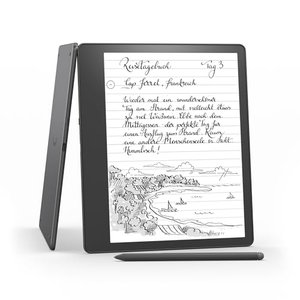 Reisetagebuch Tag 3
Cap Ferret, Frankreich
Wieder mal ein wunderschöner
Tag am Strand, mit vielleicht etwas
zu viel Weißwein. Also nach dem
Mittagessen - der perfekte Tag für
einen Ausflug zum Strand. Kaum
eine andere Menschenseele in Sicht.
Himmlisch!